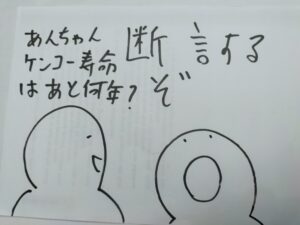 あんちゃん
ケンコー寿命
はあと何年？
断言する
ぞ